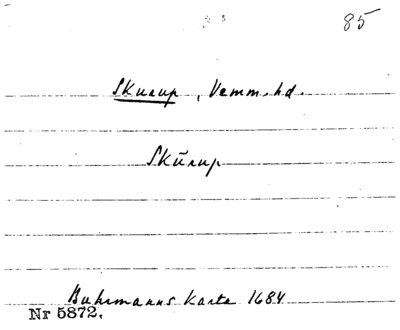 85
Skurup, Vemm. hd.
Skūrup
Buhrmanns Karta 1684
Nr 5872.